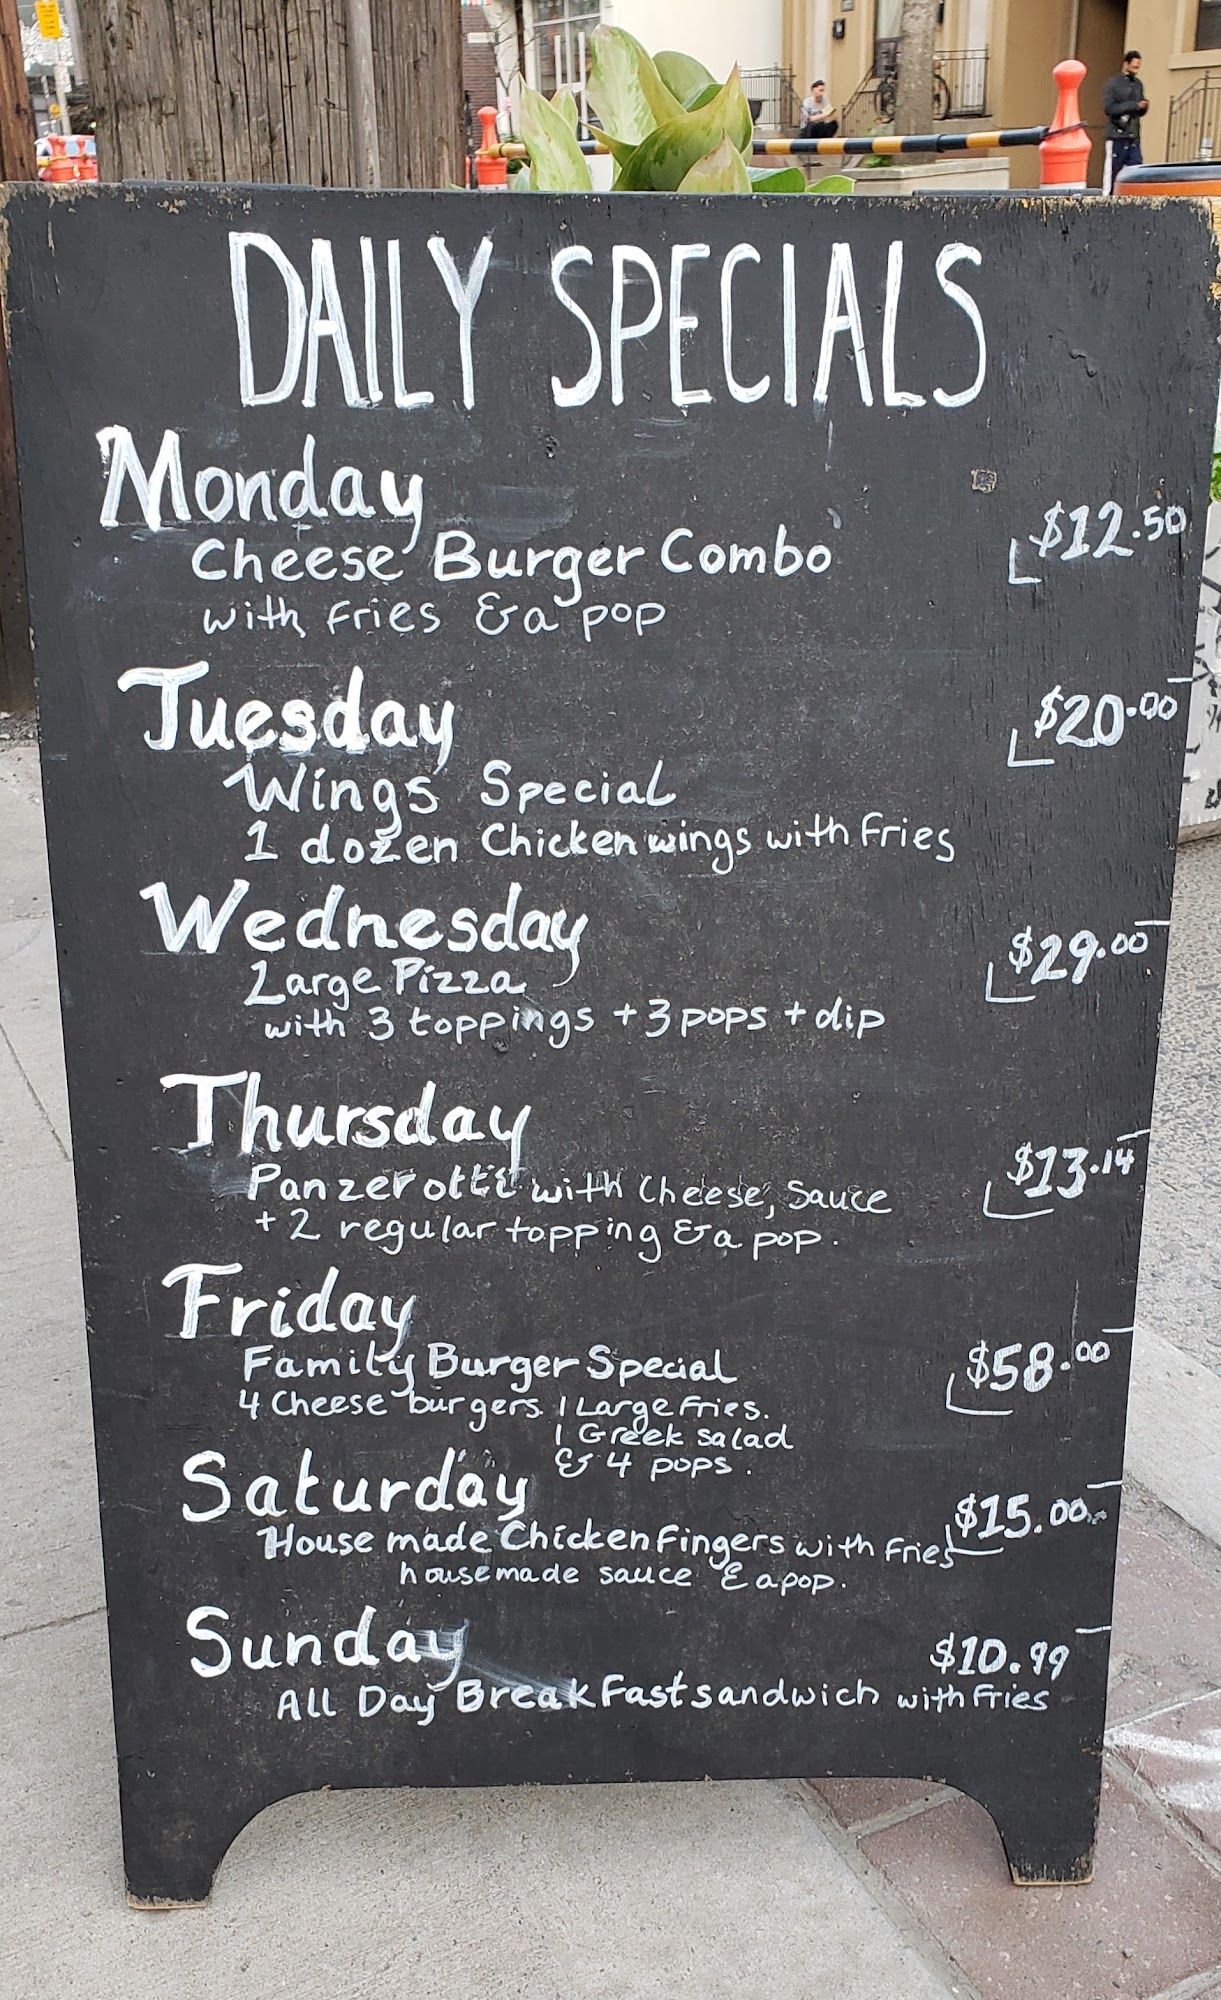 DAILY SPECIALS
Monday
Cheese Burger Combo $12.50
with fries & a pop
Tuesday $20.00
Wings Special
1 dozen Chicken wings with fries
Wednesday $29.00
Large Pizza
with 3 toppings + 3 pops + dip
Thursday $13.14
Panzerotti with Cheese, Sauce
+ 2 regular topping & a pop.
Friday
Family Burger Special $58.00
4 Cheese burgers. 1 Large fries.
1 Greek salad
& 4 pops.
Saturday $15.00
House made Chicken Fingers with fries
housemade sauce & a pop.
Sunday $10.99
All Day BreakFast sandwich with fries